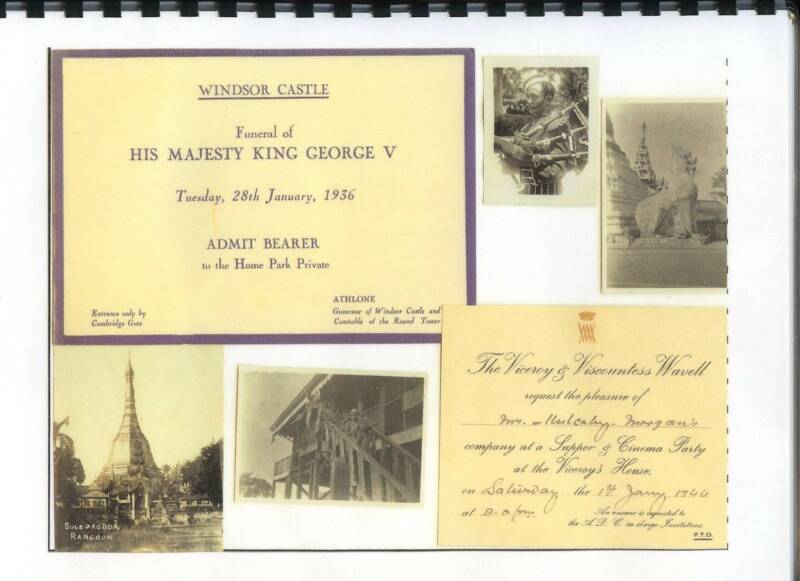 WINDSOR CASTLE
Funeral of
HIS MAJESTY KING GEORGE V
Tuesday, 28th January, 1936
ADMIT BEARER
to the Home Park Private
Entrance only by
Cambridge Gate
ATHLONE
Governor of Windsor Castle and
Constable of the Round Tower
SULE PAGODA
RANGOON
The Viceroy & Viscountess Wavell
request the pleasure of
Mr. Mulcahy-Morgan's
company at a Supper & Cinema Party
at the Viceroy's House,
on Saturday the 1st Jany 1944
at 8-0 pm.
An answer is requested to
the A.D.C. in charge Invitations.
P.T.O.